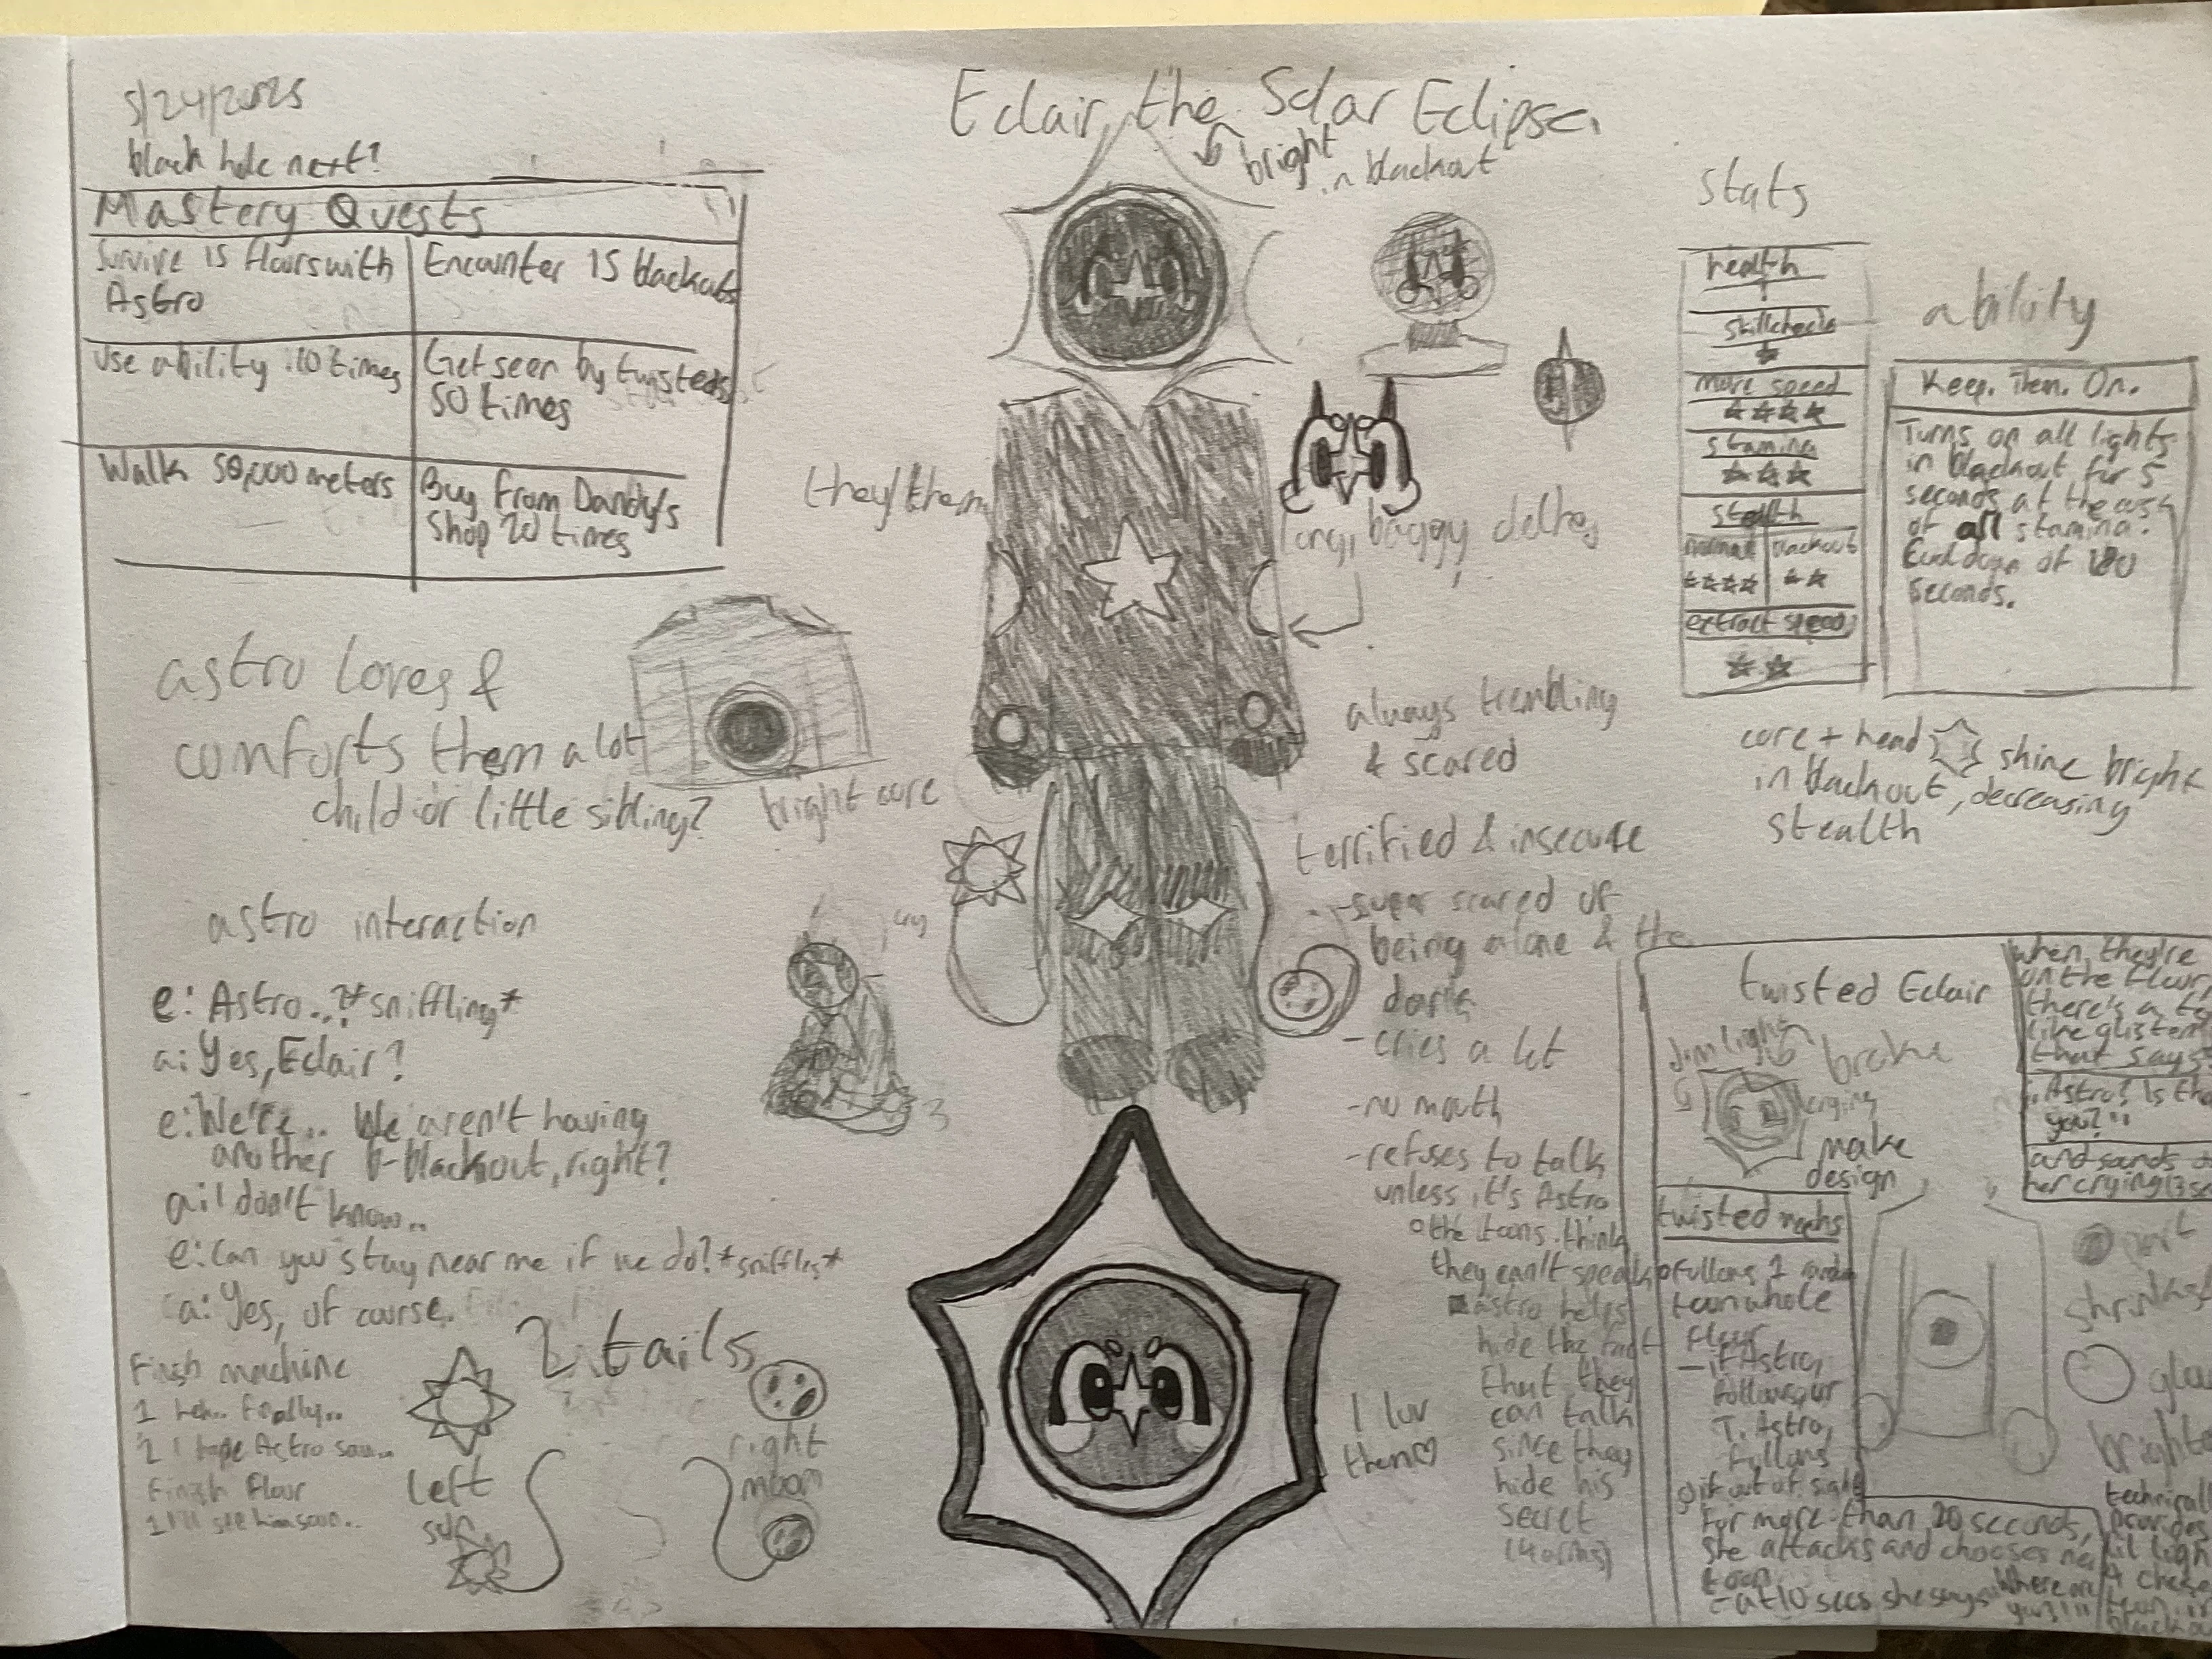 5/24/2025
black hole next?
Eclair, the Solar Eclipse.
bright
in blackout
Mastery Quests
Survive 15 floors with
Astro
Encounter 15 blackouts
Use ability 10 times
Get seen by twisteds
50 times
Walk 50,000 meters
Buy from Dandy's
Shop 20 times
they/them
long, baggy clothes
stats
health
skillchecks
★
move speed
★★★★
stamina
★★★
stealth
normal
blackout
★★★★
★★
extract speed
★★
ability
Keep. Them. On.
Turns on all lights
in blackout for 5
seconds at the cost
of all stamina.
Cooldown of 180
seconds.
core + head shine bright
in blackout, decreasing
stealth
astro loves &
comforts them a lot
child or little sibling?
bright core
always trembling
& scared
terrified & insecure
-super scared of
being alone & the
dark
-cries a lot
-no mouth
-refuses to talk
unless it's Astro
the toons think
they can't speak
astro helps
hide the fact
that they
can talk
since they
hide his
secret
(4 arms)
I luv
them♡
astro interaction
e: Astro..? *sniffling*
a: Yes, Eclair?
e: We're.. We aren't having
another b-blackout, right?
a: I don't know..
e: Can you stay near me if we do? *sniffles*
a: Yes, of course.
cry
2 tails
left
sun
right
moon
Finish machine
1 heh.. finally..
2 I hope Astro saw..
Finish floor
1 I'll see him soon..
twisted Eclair
dim light
broke
crying
make
design
when they're
on the floor,
there's a
like glisten
that says
"Astro? Is tha
you?"
and sounds
her crying
twisted mechs
follows 1
toon whole
floor
-if Astro,
follows our
T. Astro,
follows
if out of sight
for more than 20 seconds,
she attacks and chooses new
toon
-at 10 secs she says "Where are
you?!"
shrinks
glow
brighte
technicall
provides
lil ligh
4 chase
toon in
blackou